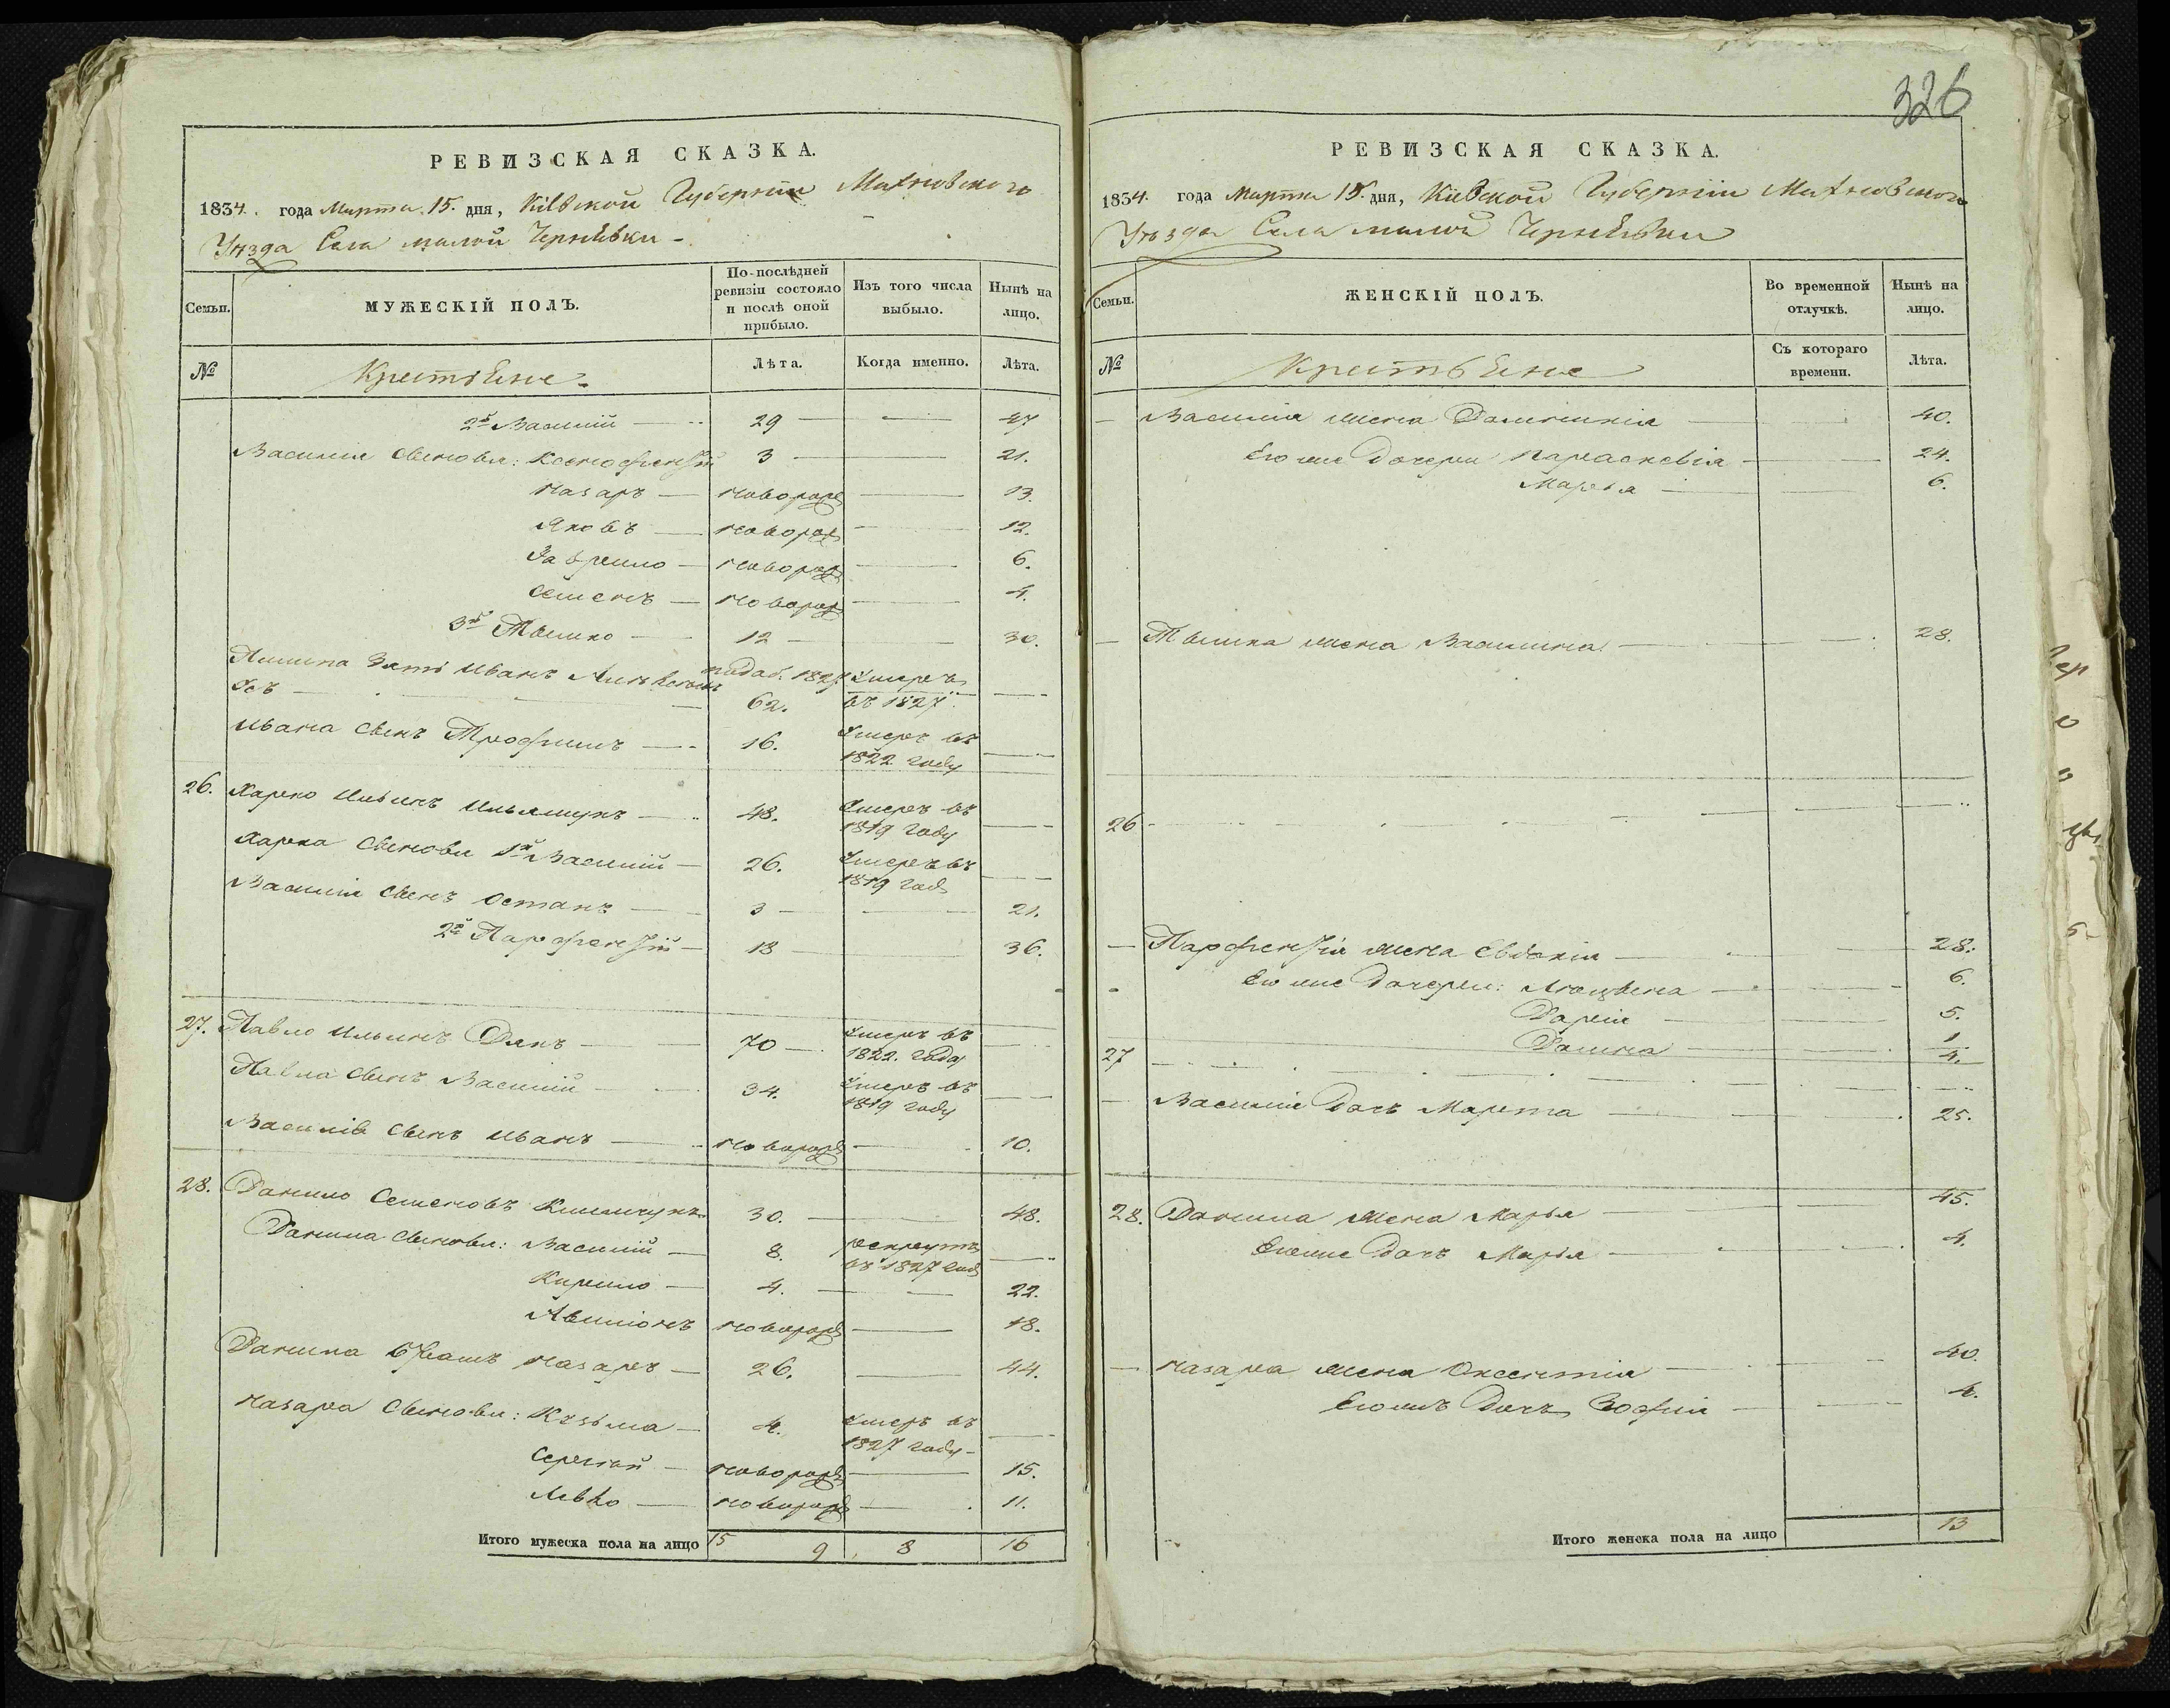 РЕВИЗСКАЯ СКАЗКА.
1834. года Марта 15. дня, Кіевской Губерніи Махновского
Уѣзда Села малой Чернѣвки
Семьи.
МУЖЕСКІЙ ПОЛЪ.
По послѣдней ревизіи состояло и послѣ оной прибыло.
Изъ того числа выбыло.
Нынѣ на лицо.
№
Крестьѣне
Лѣта.
Когда именно.
Лѣта.
2й Василій 29 47
Василія сыновья: Ксенофонтій 3 21.
Назаръ новорож 13.
Яковъ новорож 12.
Гаврило новорож 6.
Семенъ новорож 4.
3й Тымко 12 30.
зять Иванъ 1827 умеръ
62. въ 1827
Ивана сынъ Трофимъ 16. умеръ въ
1822 году
26. Харко Ильинъ 48. умеръ въ
1819 году
Харка сыновья 1й Василій 26. умеръ въ
1819 год
Василія сынъ Остапъ 3 21.
2й Парфентій 18 36.
27. Павло Ильинъ Дякъ 70 умеръ въ
1822. года
Павла сынъ Василій 34. умеръ въ
1819 году
Василія сынъ Иванъ новорож 10.
28. Данило Семеновъ 30. 48.
Данила сыновья: Василій 8. рекрутъ
въ 1827 год
Кирило 4. 22.
новорож 18.
Данила братъ Назаръ 26. 44.
Назара сыновья: Кузьма 4. умеръ въ
1827 году
Сергій новорож 15.
Левко новорож 11.
Итого мужеска пола на лицо 15 9 8 16
326
РЕВИЗСКАЯ СКАЗКА.
1834. года Марта 15. дня, Кіевской Губерніи Махновского
Уѣзда Села малой Чернѣвки
Семьи.
ЖЕНСКІЙ ПОЛЪ.
Во временной отлучкѣ.
Нынѣ на лицо.
№
Крестьѣне
Съ котораго времени.
Лѣта.
Василія жена 40.
Его же дочери Параскевія 24.
Марья 6.
Тымка жена Василина 28.
26
Парфентія жена Евдокія 28.
Его же дочери: 6.
Дарія 5.
1
27 4.
Василія дочь Марта 25.
28. Данила жена Марья 45.
Его же дочь Марья 4.
Назара жена 40.
Его же дочь Зофія 4.
Итого женска пола на лицо 13